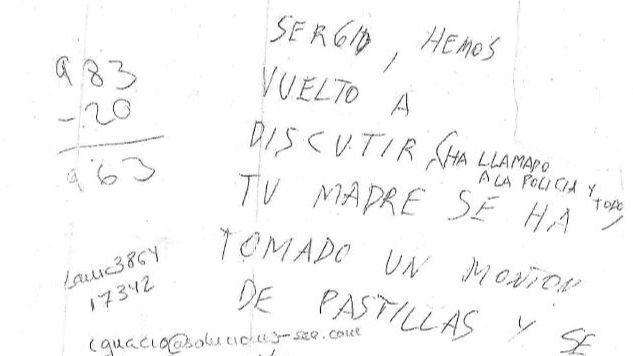 SERGIO, HEMOS
VUELTO A
DISCUTIR, (HA LLAMADO
A LA POLICIA Y TODO)
TU MADRE SE HA
TOMADO UN MONTON
DE PASTILLAS Y SE
983
-20
963
3864
17342